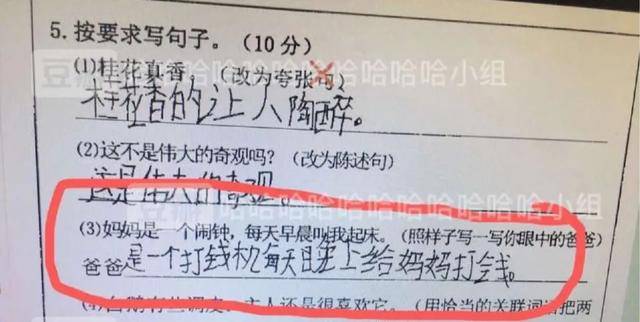 5.按要求写句子。(10分)
(1)桂花真香。(改为夸张句)
桂花香的让人陶醉。
(2)这不是伟大的奇观吗? (改为陈述句)
这是伟大的奇观。
(3)妈妈是一个闹钟,每天早晨叫我起床。(照样子写一写你眼中的爸爸)
爸爸是一个打钱机每天晚上给妈妈打钱。
豆瓣哈哈哈哈哈哈哈哈哈小组